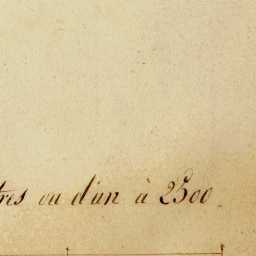 tres ou d'un à 2500.